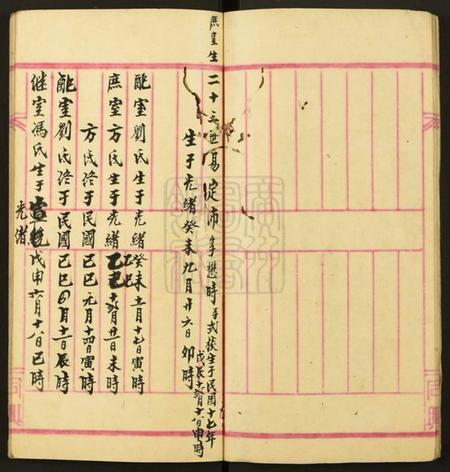 庶室生
二十三世易淀沛字懋時子式掞生于民國十七年
戊辰十二月十八日申時
生于光緒癸未九月廿六日卯時
配室劉氏生于光緒癸未十二月十七日寅時
庶室方氏生于光緒乙巳十二月廿一日未時
方氏洛于民國己巳元月十四日寅時
配室劉氏洛于民國己巳四月十二日辰時
继室馮氏生于光緒戊申六月十八日巳時
同興
同興